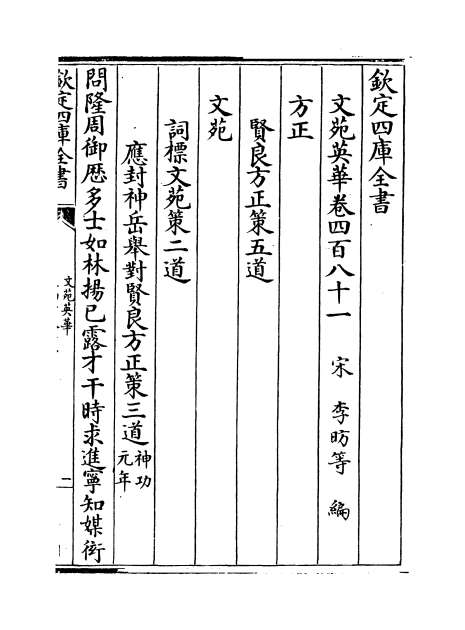 欽定四庫全書
文苑英華卷四百八十一　宋　李昉等　編
方正
賢良方正策五道
文苑
詞標文苑策二道
應封神岳舉對賢良方正策三道神功元年
問隆周御厯多士如林揚已露才干時求進寧知媒衒
欽定四庫全書
文苑英華